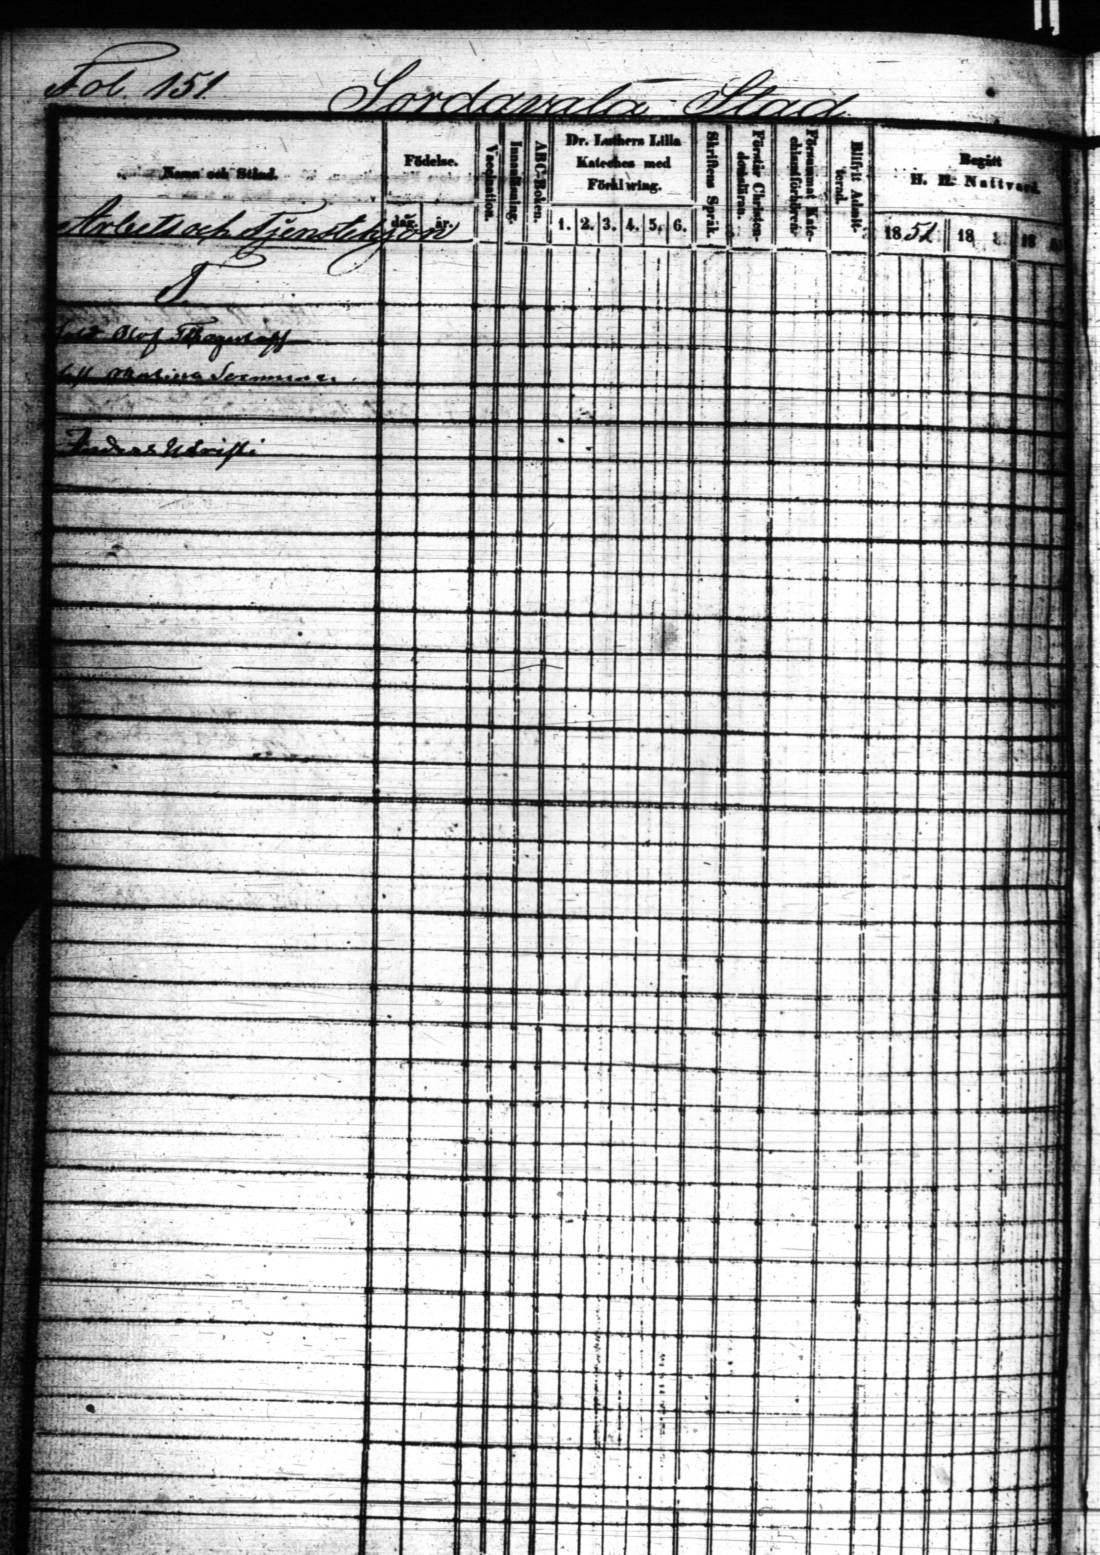 Fol. 151.
Sordavala Stad
Namn och Stånd.
Födelse.
dag. år.
Vaccination.
Innanläsning.
ABC-Boken.
Dr. Luthers Lilla
Kateches med
Förklaring.
1. 2. 3. 4. 5. 6.
Skriftens Språk.
Förstår Christen-
domsläran.
Försummat Kate-
chismiförhören.
Blifvit Admit-
terad.
Begått
H. H. Nattvard.
1851 18 18
Arbets och Tjenstehjon
Olof
Anders